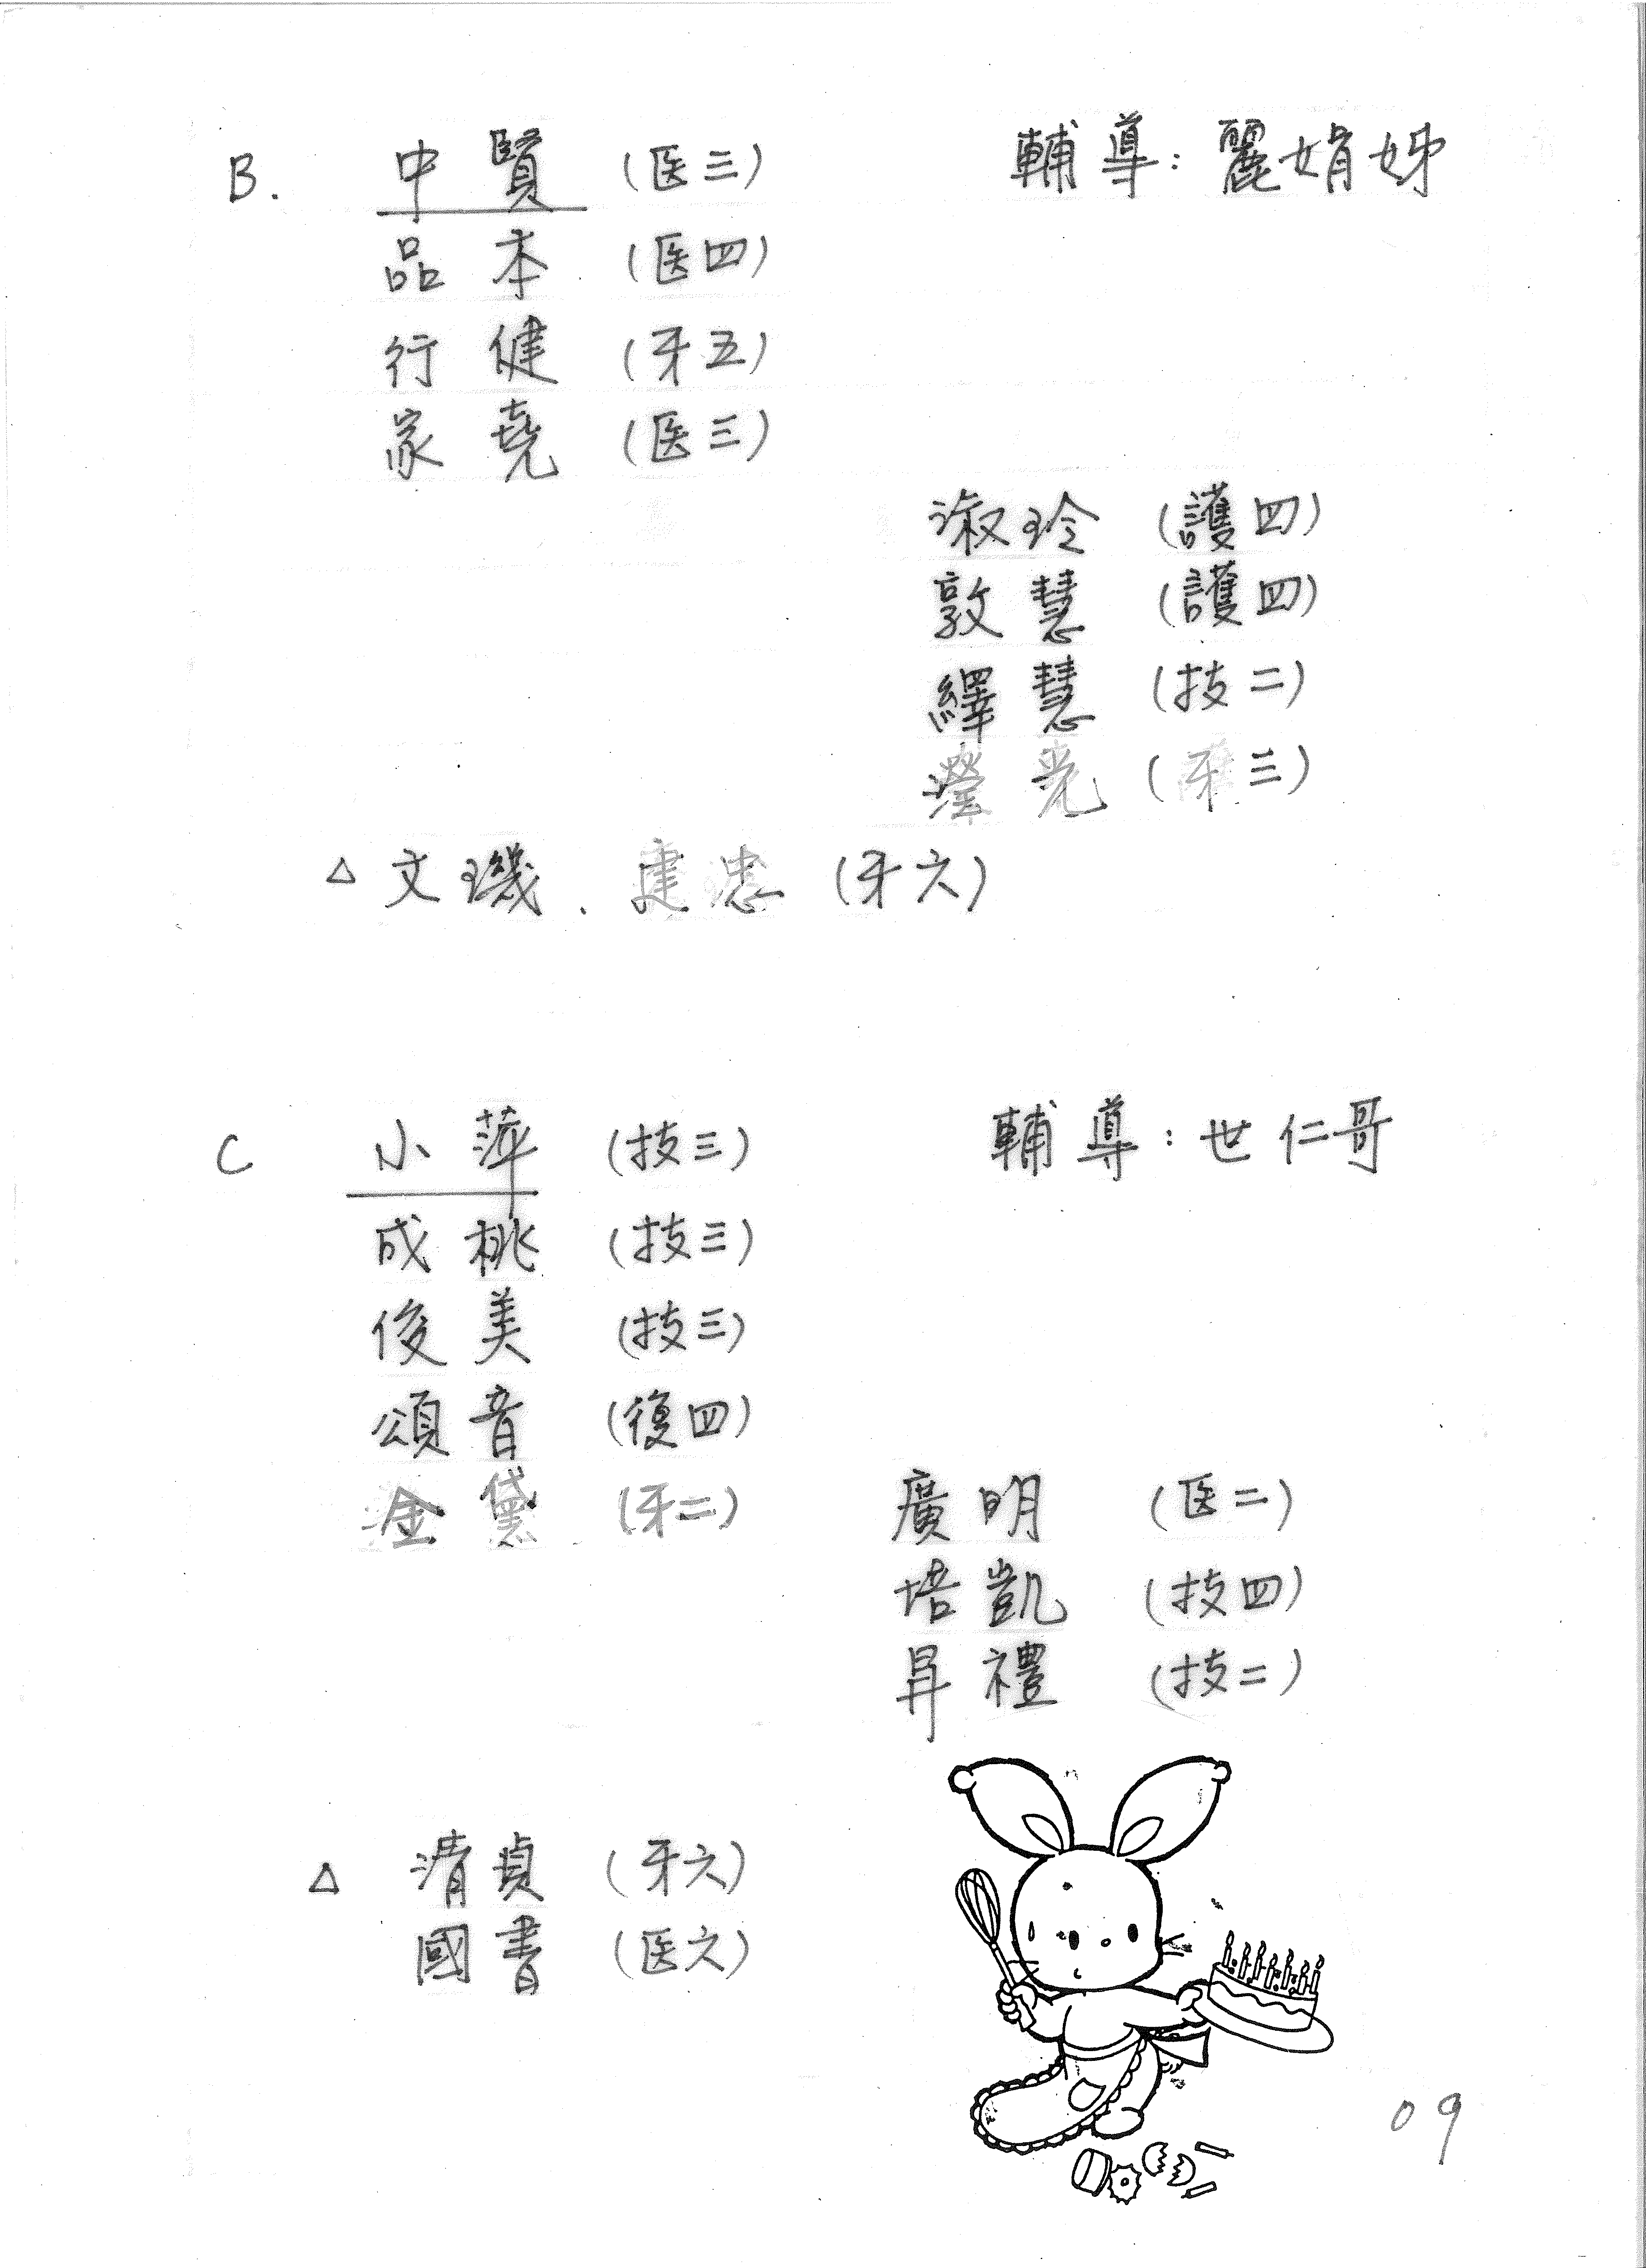 B. 中賢 (医三) 輔導：麗娟姊
品本 (医四)
行健 (牙五)
家堯 (医三)
淑玲 (護四)
敦慧 (護四)
繹慧 (技二)
瀅光 (牙三)
△ 文璣、建忠 (牙六)
C 小萍 (技三) 輔導：世仁哥
成桃 (技三)
俊美 (技三)
頌音 (復四)
金黛 (牙二)
廣明 (医二)
培凱 (技四)
昇禮 (技二)
△ 清貞 (牙六)
國書 (医六)
09